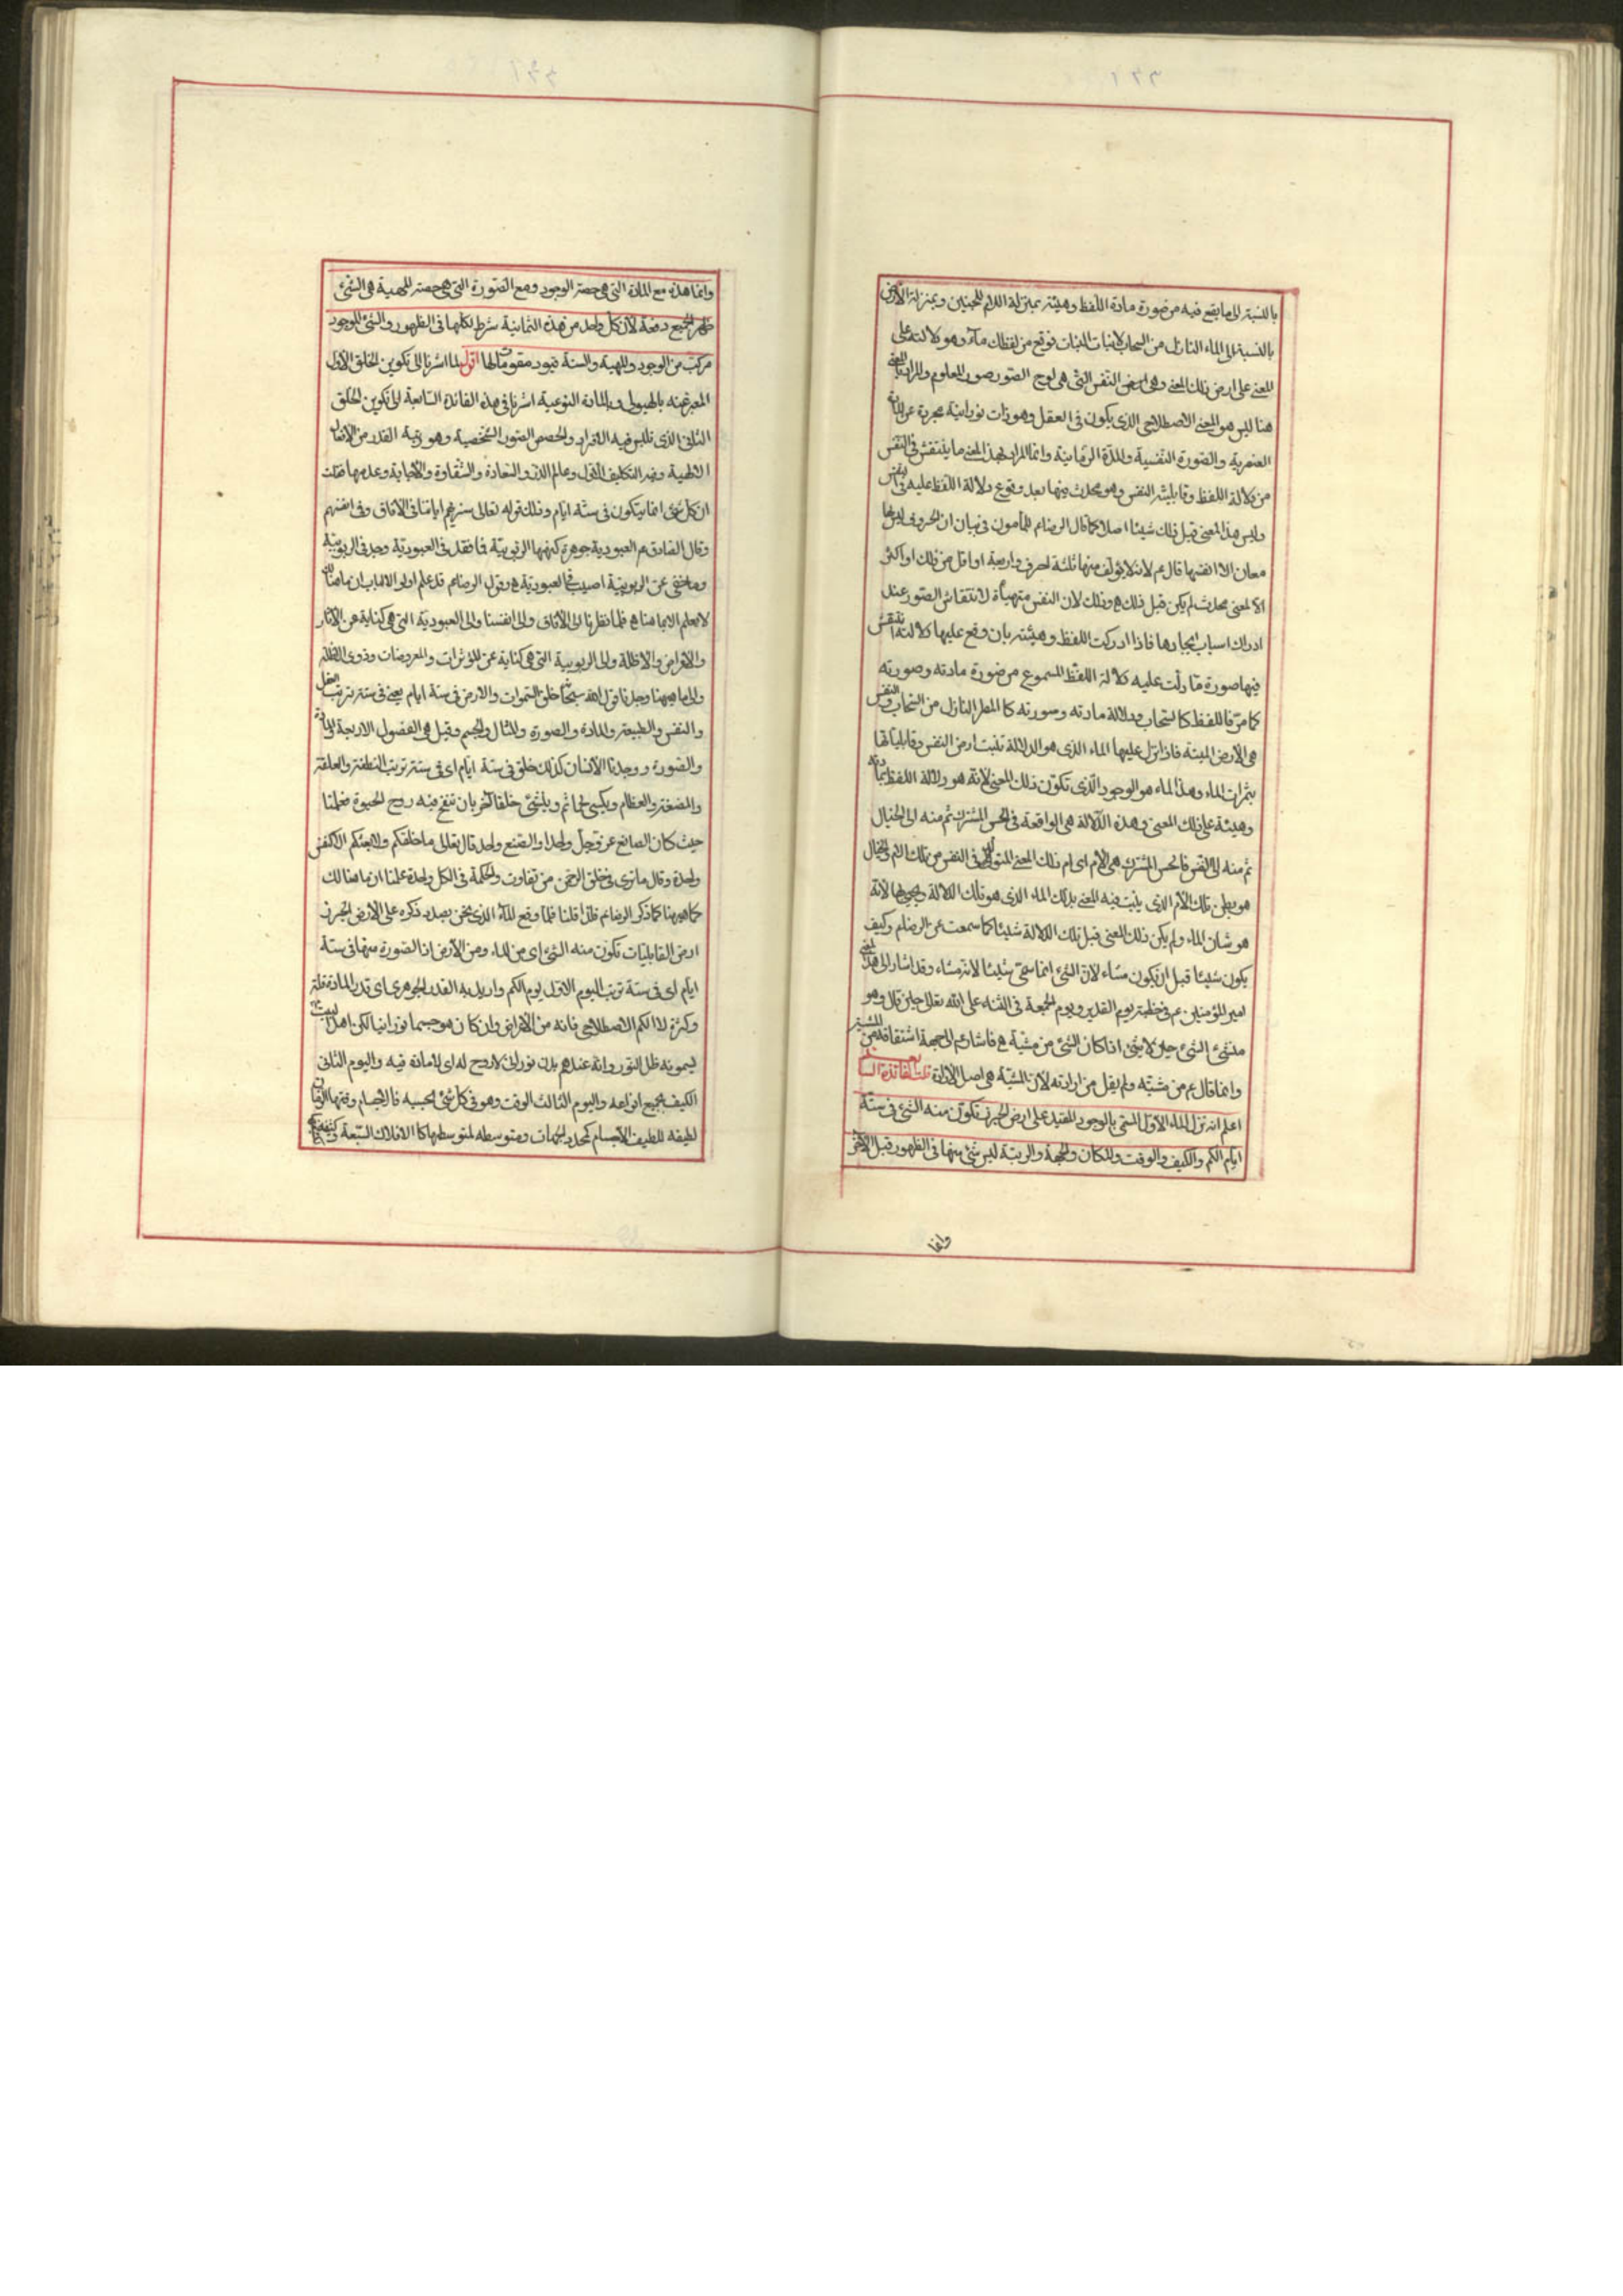 بالنسبة الى ما يقع فيه من صورة مادة اللفظ وهيئته بمنزلة الام للجنين وبمنزلة الأرض
بالنسبة الى الماء النازل من السحاب لانبات النبات فوقع من لفظك ماء وهو دلالته على
المعنى على ارض ذلك المعنى وهى ارض النفس التى هى لوح الصور صور المعلوم والمراد بالمعنى
هنا ليس هو المعنى الاصطلاحى الذى يكون فى العقل وهو ذات نورانية مجردة عن المادة
العنصرية والصورة النفسية والمدة الزمانية وانما المراد بهذا المعنى ما ينتقش فى النفس
من دلالة اللفظ وقابلية النفس وهو محدث فيها بعد وقوع دلالة اللفظ عليه فى النفس
وليس هذا المعنى قبل ذلك شيئا اصلا كما قال الرضا عم للمأمون فى بيان ان الحروف ليس لها
معان الا انفسها قال عم لانه لا يؤلف منها ثلثة احرف او اربعة او اقل من ذلك او اكثر
الا لمعنى محدث لم يكن قبل ذلك ه وذلك لان النفس متهيأة لانتقاش الصور عند
ادراك اسباب ايجادها فاذا ادركت اللفظ وهيئته بان وقع عليها دلالتها تنتقش
فيها صورة ما دلت عليه دلالة اللفظ المسموع من صورة مادته وصورته
كما مر فاللفظ كالسحاب ودلالة مادته وصورته كالمطر النازل من السحاب والنفس
هى الأرض الميتة فاذا نزل عليها الماء الذى هو الدلالة نبتت ارض النفس وقابلياتها
بثمرات الماء وهذا الماء هو الوجود الذى تكون ذلك المعنى لانه هو دلالة اللفظ بمادته
وهيئة على ذلك المعنى وهذه الدلالة هى الواقعة فى الحس المشترك ثم منه الى الخيال
ثم منه الى النفس فالحس المشترك هى الأم اى ام ذلك المعنى المتولد فى النفس من تلك الام والخيال
هو بطن تلك الأم الذى ينبت فيه المعنى بذلك الماء الذى هو تلك الدلالة ويحيى بها لانه
هو شان الماء ولم يكن ذلك المعنى قبل تلك الدلالة شيئا كما سمعت عن الرضا عم وكيف
يكون شيئا قبل ان يكون مشاء لان الشىء انما سمى شيئا لانه مشاء وقد اشار الى هذا المعنى
امير المؤمنين عم فى خطبته يوم الغدير ويوم الجمعة فى الثناء على الله تعالى حين قال وهو
منشئ الشىء حين لا شىء اذ كان الشىء من مشيته ه فاشار عم الى جهة اشتقاقه من المشية
وانما قال عم من مشيته ولم يقل من ارادته لان المشية هى اصل الارادة قلت الفائدة السابعة
اعلم انه نزل الماء الأول المسمى بالوجود المقيد على ارض الجرز تكون منه الشىء فى ستة
ايام الكم والكيف والوقت والمكان والجهة والرتبة ليس شىء منها فى الظهور قبل الآخر
وانما
وانما هذه مع المادة التى هى حصة الوجود ومع الصورة التى هى حصة المهية هى الشىء
ظهر الجميع دفعة لان كل واحد من هذه الثمانية شرط لكلها فى الظهور والشىء الموجود
مركب من الوجود والمهية والستة قيود مقومات لها اقول لما اشرنا الى تكوين الخلق الأول
المعبر عنه بالهيولى وبالمادة النوعية اشرنا فى هذه الفائدة السابعة الى تكوين الخلق
الثانى الذى تلبس فيه الافراد والحصص الصور الشخصية وهو رتبة القدر من الافعال
الالهية وفيه التكليف الأول وعالم الذر والسعادة والشقاوة والاجابة وعدمها فقلت
ان كل شىء انما يتكون فى ستة ايام وذلك قوله تعالى سنريهم اياتنا فى الآفاق وفى انفسهم
وقال الصادق عم العبودية جوهرة كنهها الربوبية فما فقد فى العبودية وجد فى الربوبية
وما خفى عن الربوبية اصيب فى العبودية ه وقول الرضا عم قد علم اولو الالباب ان ما هنالك
لا يعلم الا بما هنا ه فلما نظرنا الى الآفاق والى انفسنا والى العبودية التى هى كناية عن الآثار
والاعراض والاظلة والى الربوبية التى هى كناية عن المؤثرات والمعروضات وذوى الاظلة
والى ما هيهنا وجدنا قول الله سبحانه خلق السموات والارض فى ستة ايام يعنى فى ستة رتب العقل
والنفس والطبيعة والمادة والصورة والمثال والجسم وقيل هى الفصول الاربعة والمادة
والصورة ووجدنا الانسان كذلك خلق فى ستة ايام اى فى ستة رتب النطفة والعلقة
والمضغة والعظام ويكسى لحما ثم وينشئ خلقا آخر بان تنفخ فيه روح الحيوة فعلمنا
حيث كان الصانع عز وجل واحدا والصنع واحد قال تعالى ما خلقكم ولا بعثكم الا كنفس
واحدة وقال ما ترى فى خلق الرحمن من تفاوت والحكمة فى الكل واحدة علمنا ان ما هنالك
كما هيهنا كما ذكر الرضا عم فلذا قلنا فلما وقع الماء الذى نحن بصدد ذكره على الارض الجرز
ارض القابليات تكون منه الشىء اى من الماء ومن الأرض اذ الصورة منها فى ستة
ايام اى فى ستة رتب اليوم الاول يوم الكم واريد به القدر الجوهرى اى قدر المادة قلة
وكثرة لا الكم الاصطلاحى فانه من الاعراض وان كان هو جسما نورانيا لكن اهل البيت ع
يسمونه ظل النور وانه عندهم بدن نورانى لا روح له اى لا مادة فيه واليوم الثانى
الكيف بجميع انواعه واليوم الثالث الوقت وهو فى كل شىء بحسبه فالاجسام وقتها الزمان
لطيفه للطيف الأجسام كمحدد الجهات ومتوسطه لمتوسطها كالافلاك السبعة وكثيفه